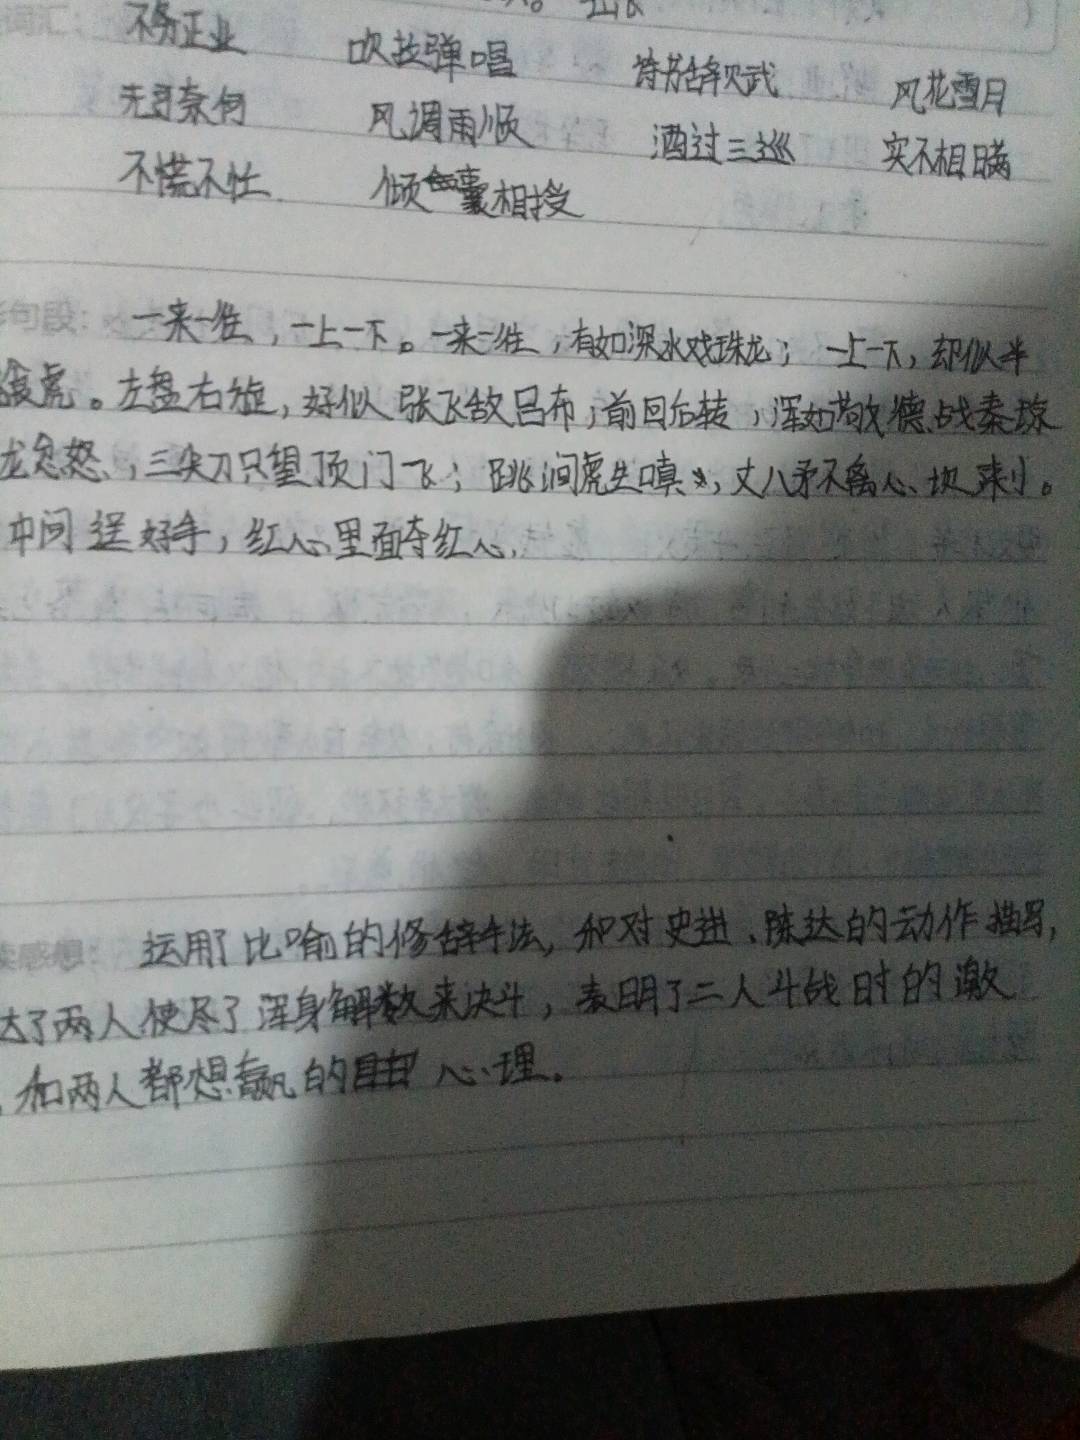 词汇：不务正业 吹弹唱 诗书辞赋 风花雪月
无可奈何 风调雨顺 酒过三巡 实不相瞒
不慌不忙 倾囊相授
句段：一来一往，一上一下。一来一往，有如深水戏珠龙；一上一下，却似半
食虎。左盘右旋，好似张飞敌吕布；前回后转，浑如敬德战秦琼
龙忿怒，三尖刀只望顶门飞；跳涧虎生嗔，丈八矛不离心坎刺。
中间逞好手，红心里面夺红心，
感想：运用了比喻的修辞手法，和对史进、陈达的动作描写，
达了两人使尽了浑身解数来决斗，表明了二人斗战时的激
，和两人都想赢的心理。